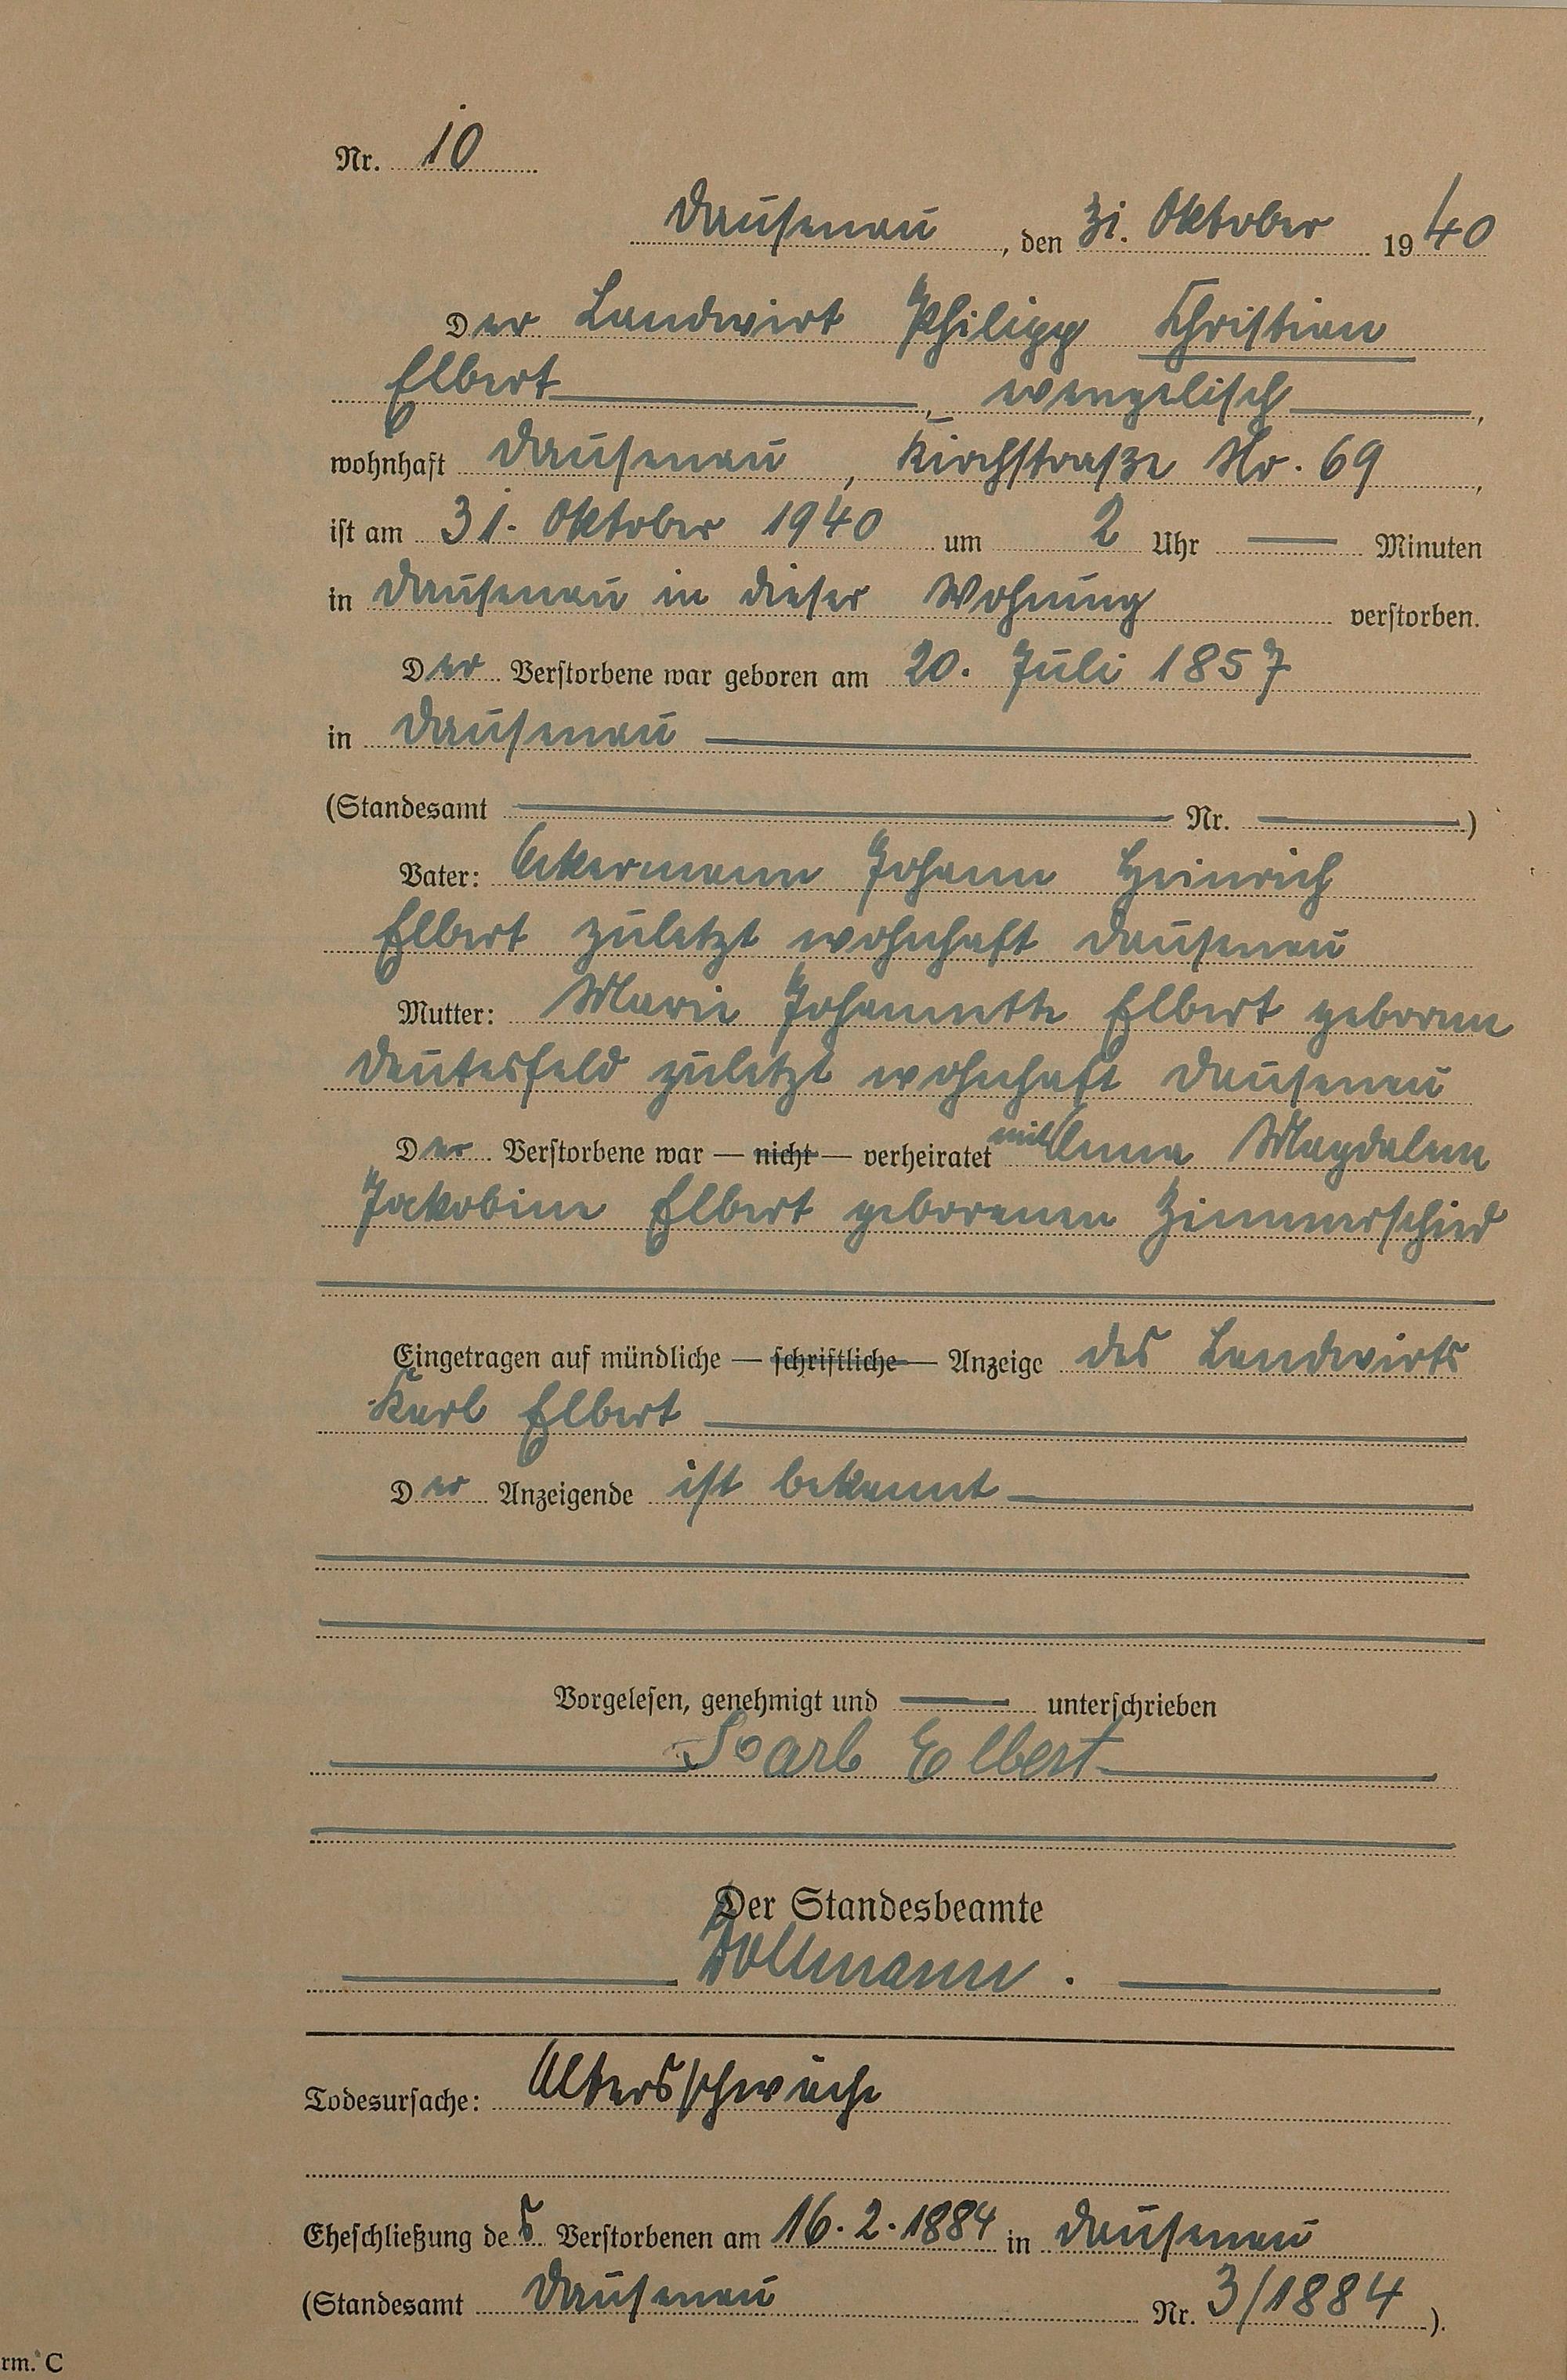 Nr. 10
Dausenau, den 31. Oktober 1940
Der Landwirt Philipp Christian
Elbert, evangelisch,
wohnhaft Dausenau, Kirchstraße Nr. 69,
ist am 31. Oktober 1940 um 2 Uhr — Minuten
in Dausenau in dieser Wohnung verstorben.
Der Verstorbene war geboren am 20. Juli 1857
in Dausenau
(Standesamt — Nr. —)
Vater: Ackermann Johann Heinrich
Elbert zuletzt wohnhaft Dausenau
Mutter: Marie Johannette Elbert geborene
Deutesfeld zuletzt wohnhaft Dausenau
Der Verstorbene war — nicht — verheiratet mit Anna Magdalene
Jakobine Elbert geborenen Zimmerschied
Eingetragen auf mündliche — schriftliche — Anzeige des Landwirts
Karl Elbert
Der Anzeigende ist bekannt
Vorgelesen, genehmigt und — unterschrieben
Karl Elbert
Der Standesbeamte
Todesursache: Altersschwäche
Eheschließung des Verstorbenen am 16.2.1884 in Dausenau
(Standesamt Dausenau Nr. 3/1884).
rm. C